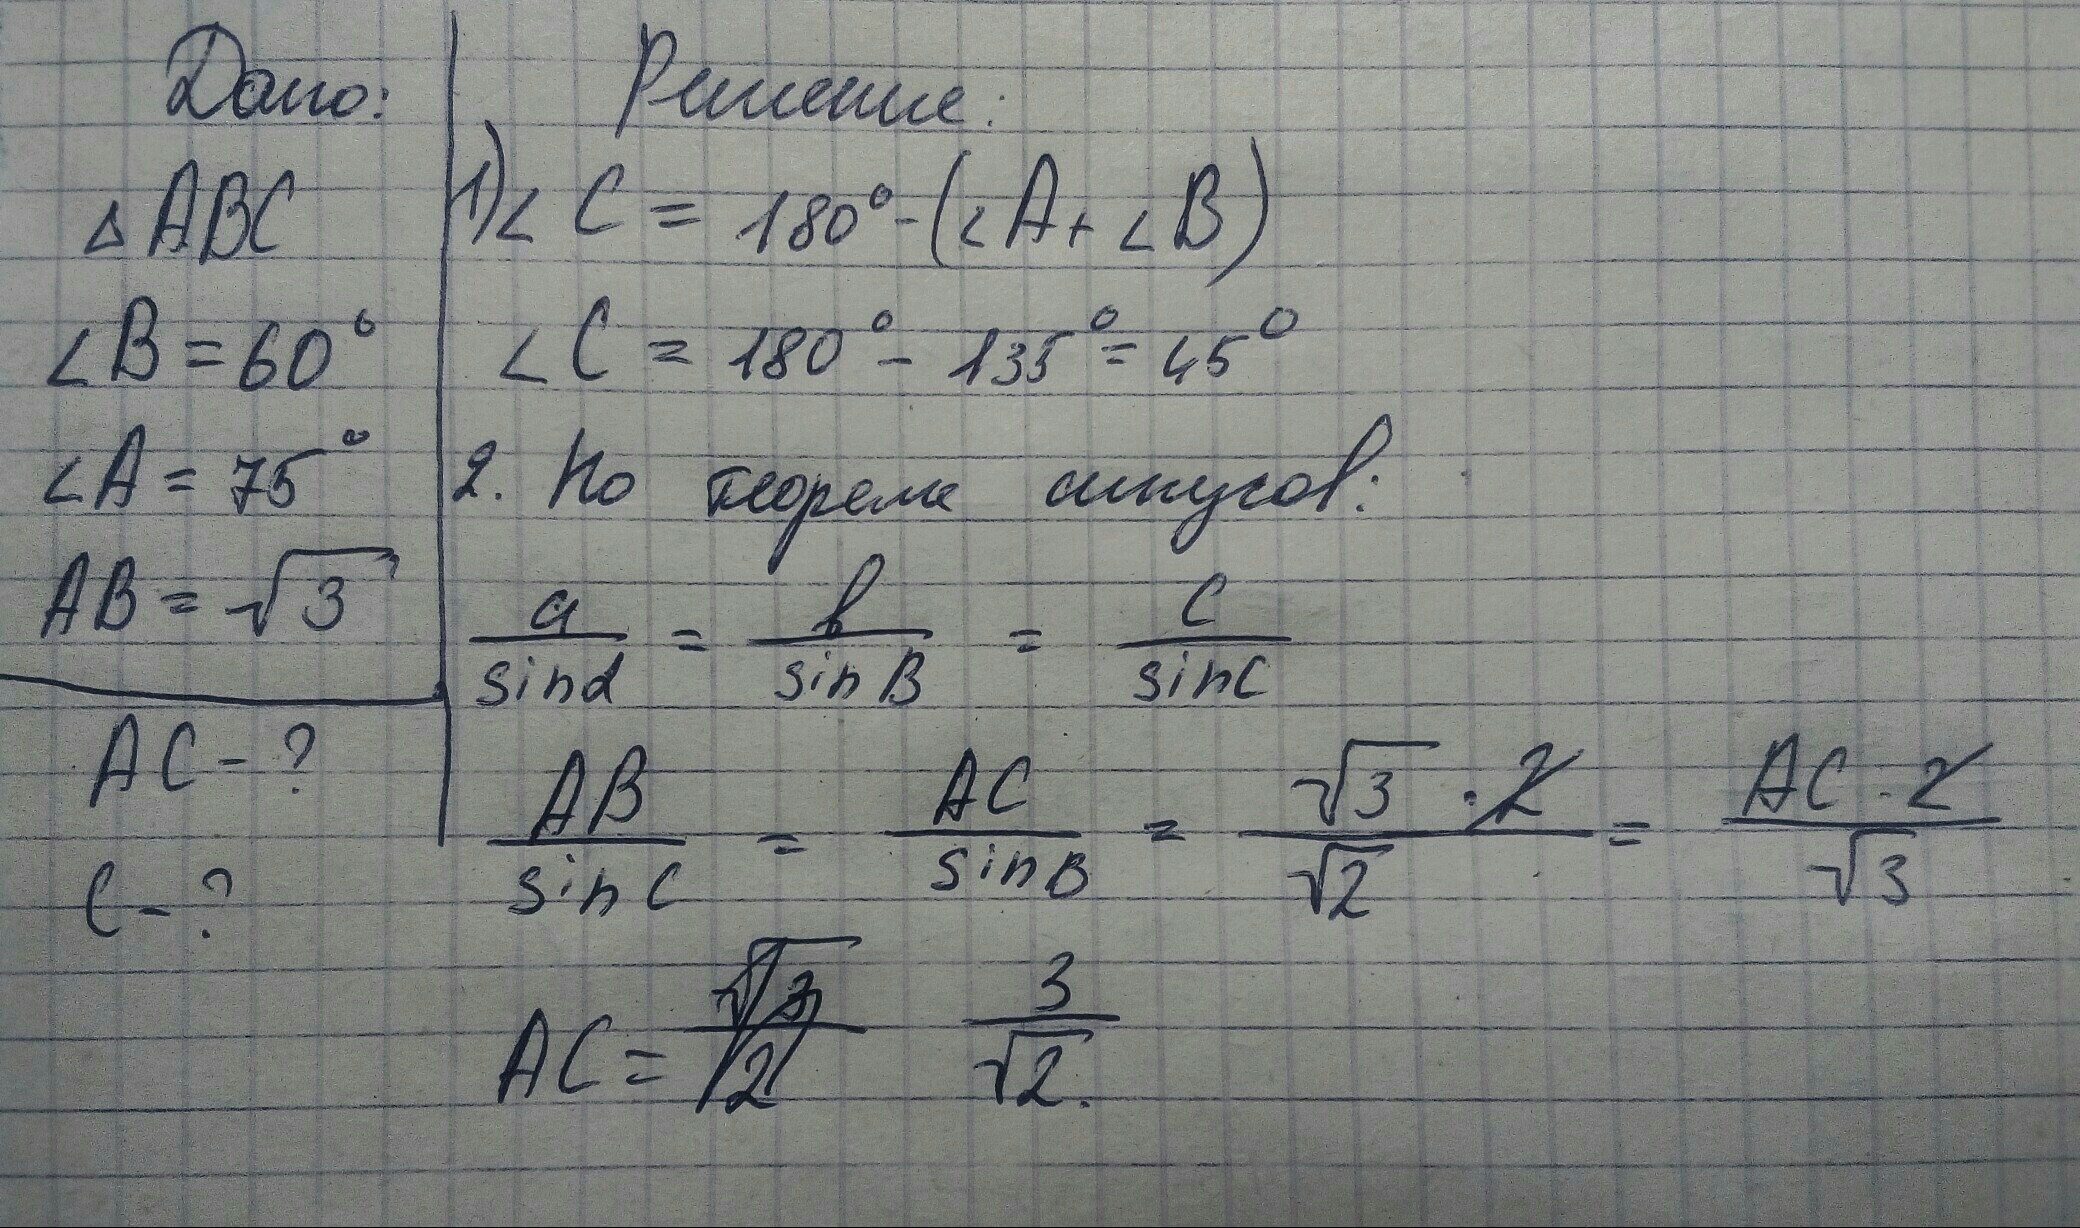 Дано:
△ ABC
∠B = 60°
∠A = 75°
AB = √3
AC - ?
C - ?
Решение:
1) ∠ C = 180° - (∠A + ∠B)
∠ C = 180° - 135° = 45°
2. По теореме синусов:
a/sinα = b/sin B = c/sin C
AB/sin C = AC/sin B = √3 · 2/√2 = AC · 2/√3
AC = √3/2 3/√2.